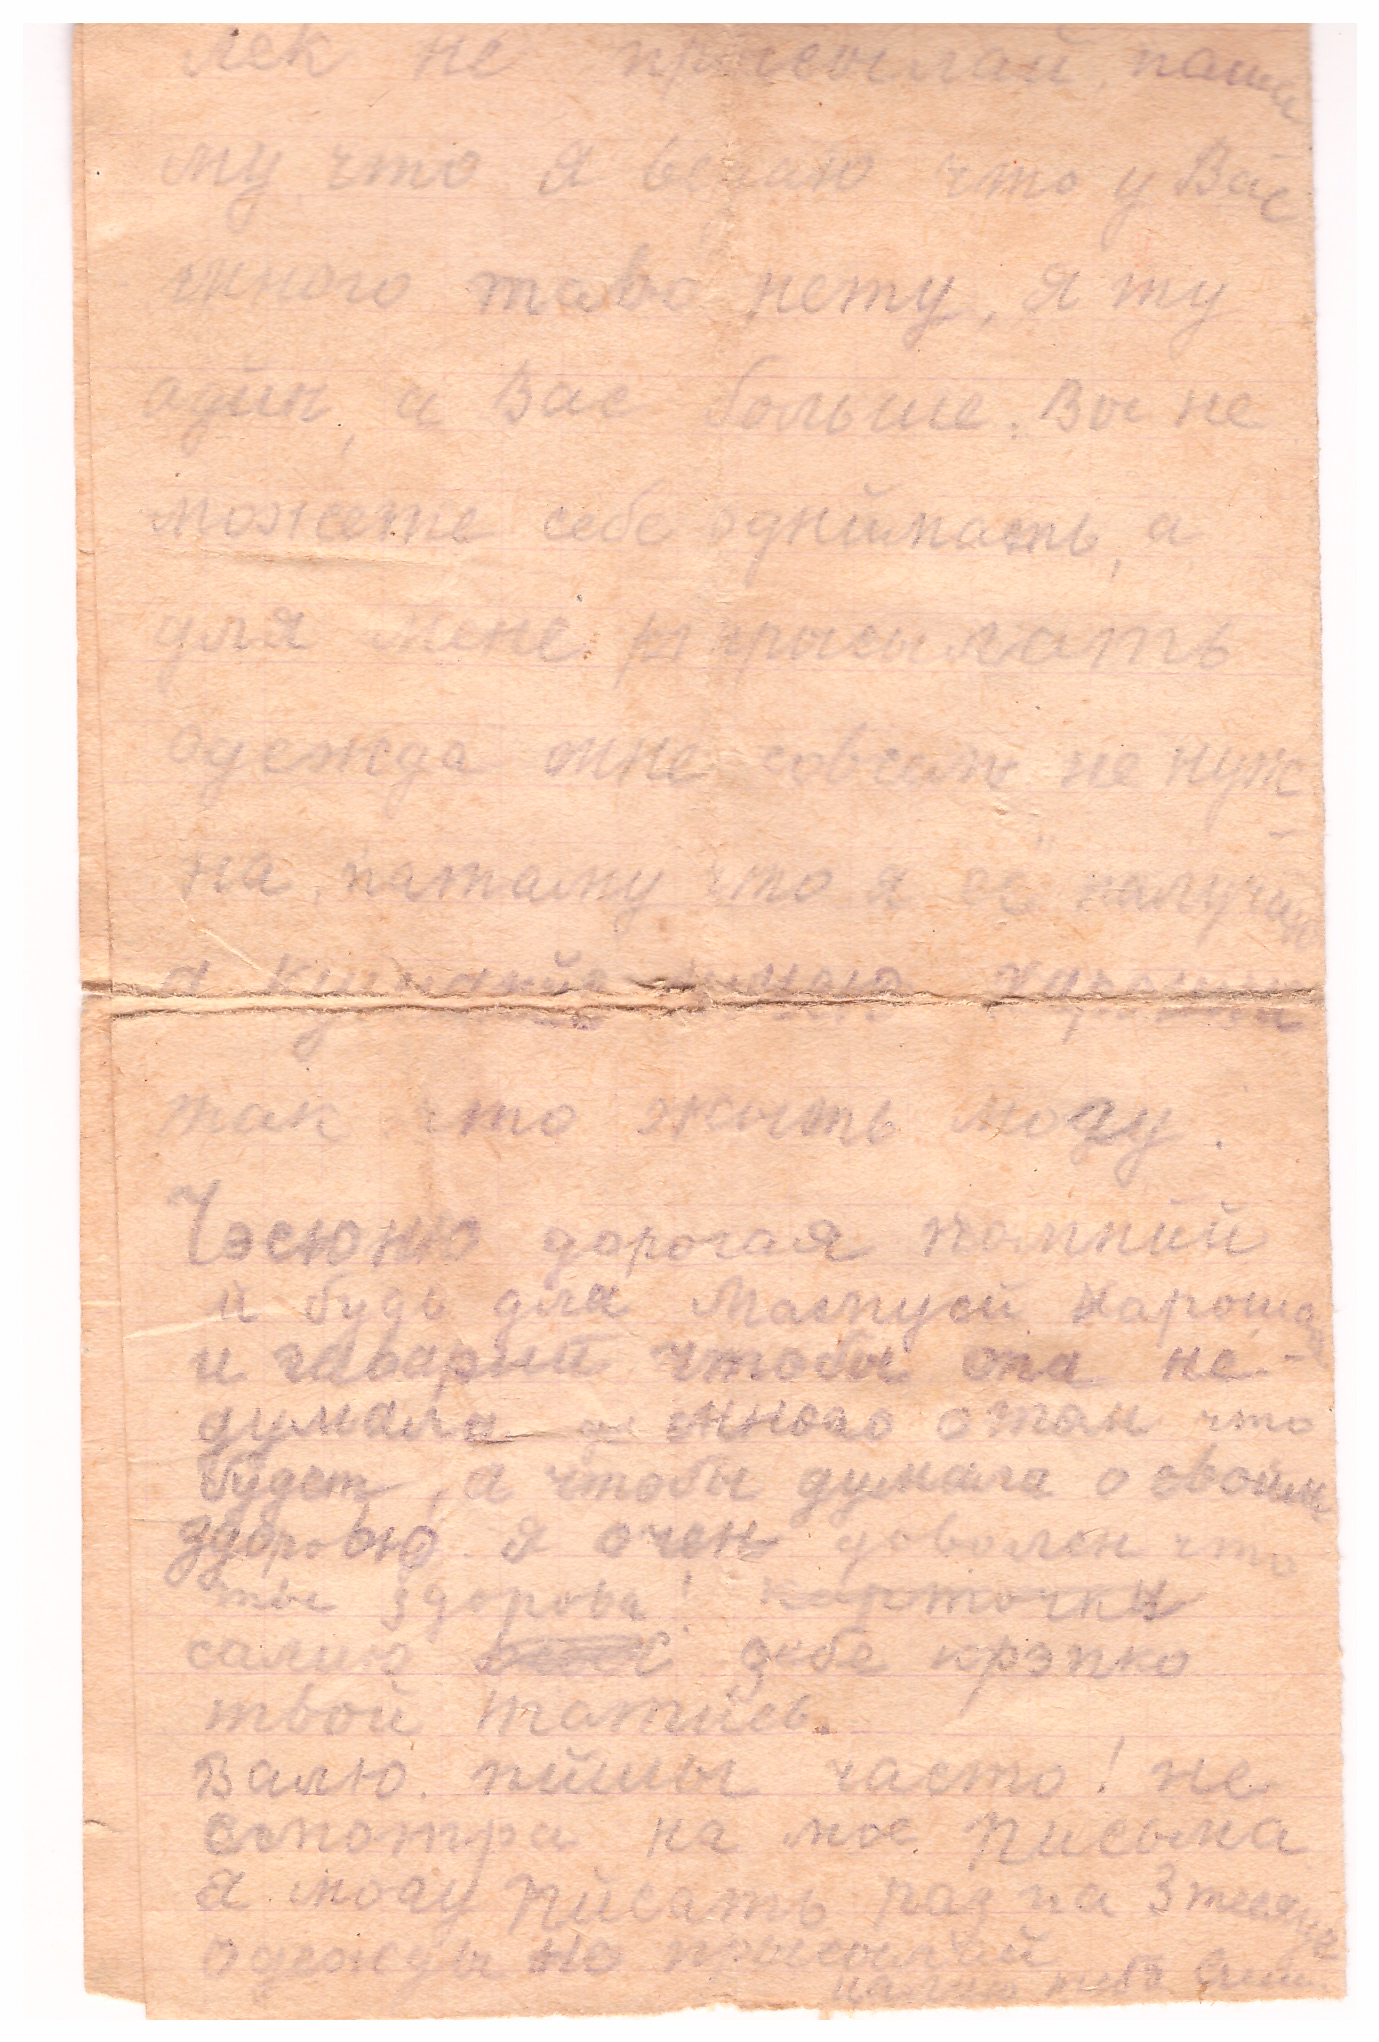 лек не присылай, пата
му что я что у Вас
много таво нету, я ту
один, а Вас больше. Вы не
можете себе однимать, а
для мене присылать
одежда мне совсем не нуж
на, патаму что я её палучаю
а харошы
так что жыть могу.
дорогая
и будь для Мамусй Хароша
и гавары чтобы она не-
думала много отом что
будет, а чтобы думала о своим
здоровю я очен доволен что
ты здорова! карточки
цебе крэпко
твой Татусь.
Валю. пишы часто! не
смотра на мое писыма
Я могу писать раз на 3 месяце
одежды не присылай
тебе